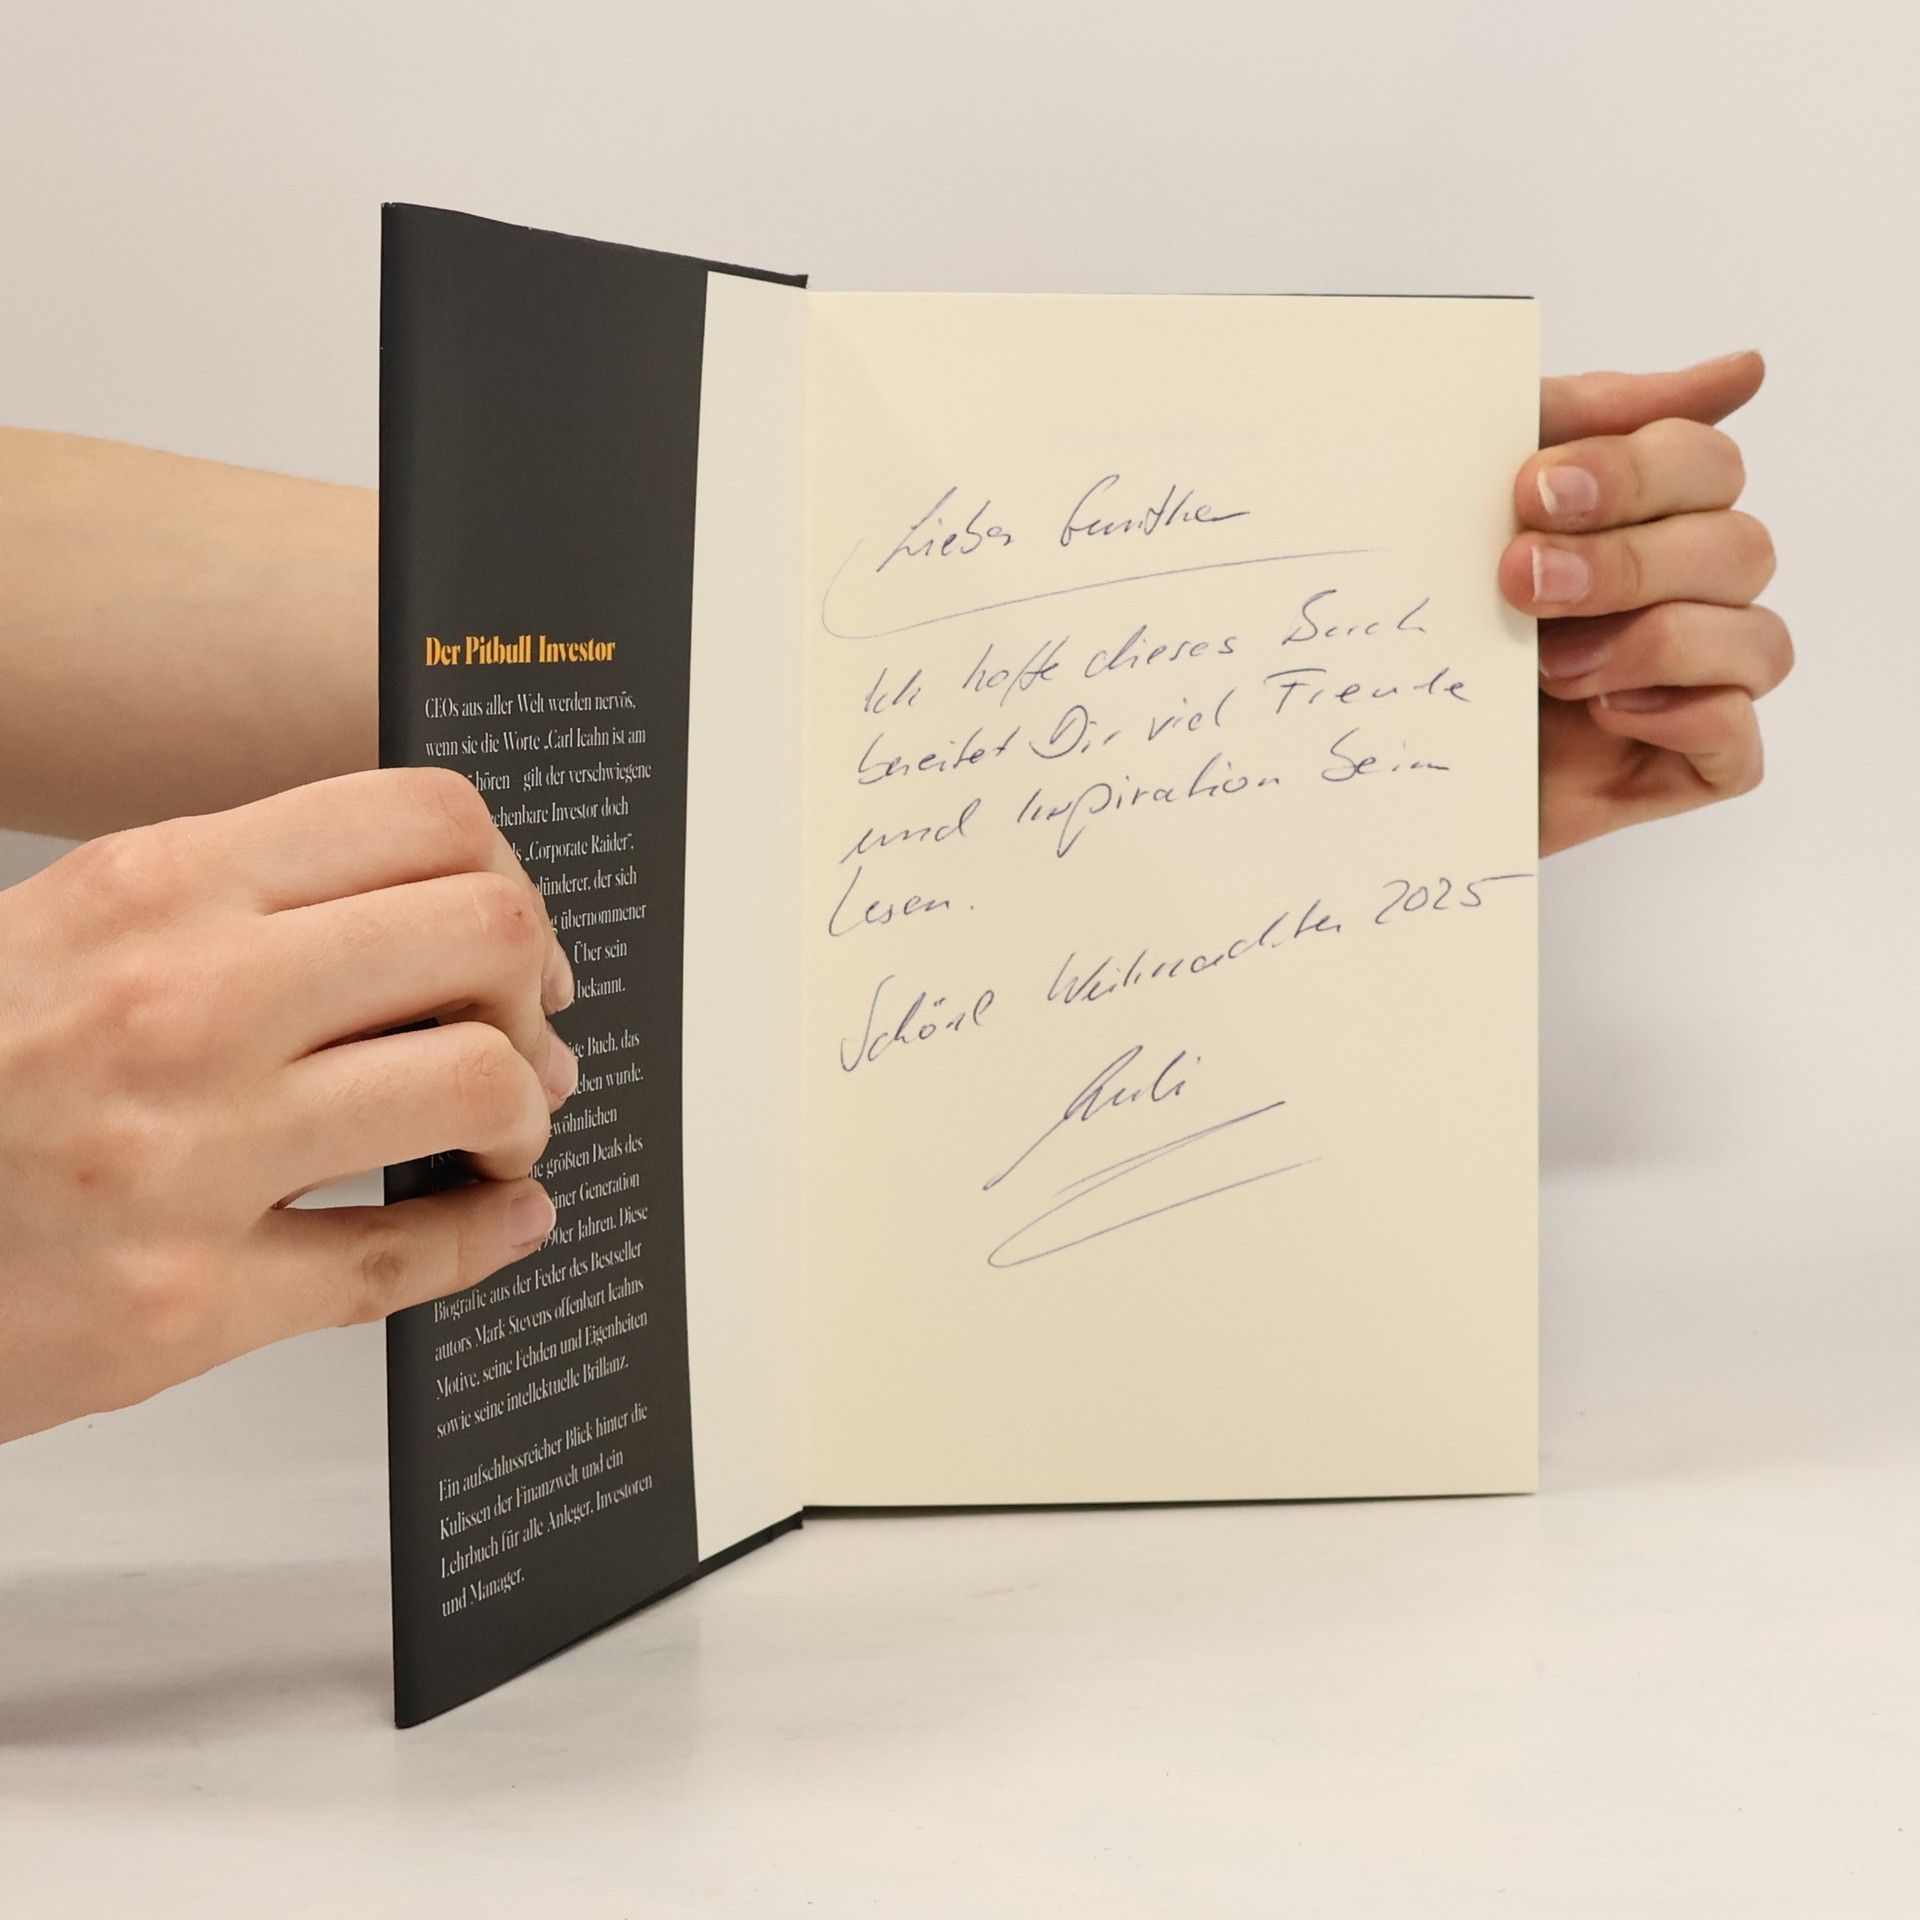 Der Pitbull Investor
CEOs aus aller Welt werden nervös,
wenn sie die Worte „Carl Icahn ist am
hören – gilt der verschwiegene
Investor doch
„Corporate Raider“,
der sich
übernommener
Über sein
bekannt.
Buch, das
wurde.
größten Deals des
Generation
Jahren. Diese
Biografie aus der Feder des Bestseller
autors Mark Stevens offenbart Icahns
Motive, seine Fehden und Eigenheiten
sowie seine intellektuelle Brillanz.
Ein aufschlussreicher Blick hinter die
Kulissen der Finanzwelt und ein
Lehrbuch für alle Anleger, Investoren
und Manager.
Lieber Gunther
Ich hoffe dieses Buch
bereitet Dir viel Freude
und Inspiration beim
Lesen.
Schöne Weihnachten 2025